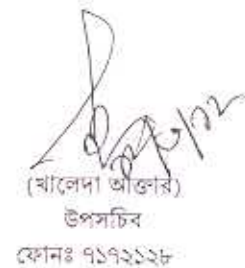 (খালেদা আক্তার)
উপসচিব
ফোনঃ ৭১৭২১২৮